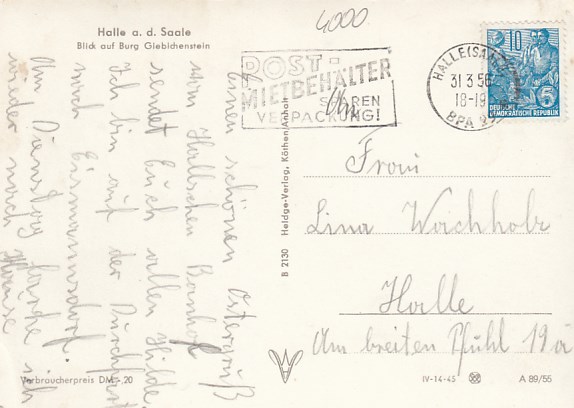 Halle a. d. Saale
Blick auf Burg Giebichenstein
4000
POST-
MIETBEHÄLTER
SPAREN
VERPACKUNG!
HALLE (SAALE)
31.3.56
18-19
BPA
10
5
DEUTSCHE
DEMOKRATISCHE REPUBLIK
Einen schönen Ostergruß
vom Hallschen Bahnhof
sendet Euch allen Hilde
Ich bin auf der Durchfahrt
nach Eismannsdorf.
Am Dienstag fahre ich
wieder nach Hause
B 2130 Heldge-Verlag, Köthen/Anhalt
Frau
Lina Wachholz
Halle
Am breiten Pfuhl 19a
Verbraucherpreis DM -.20
IV-14-45
A 89/55